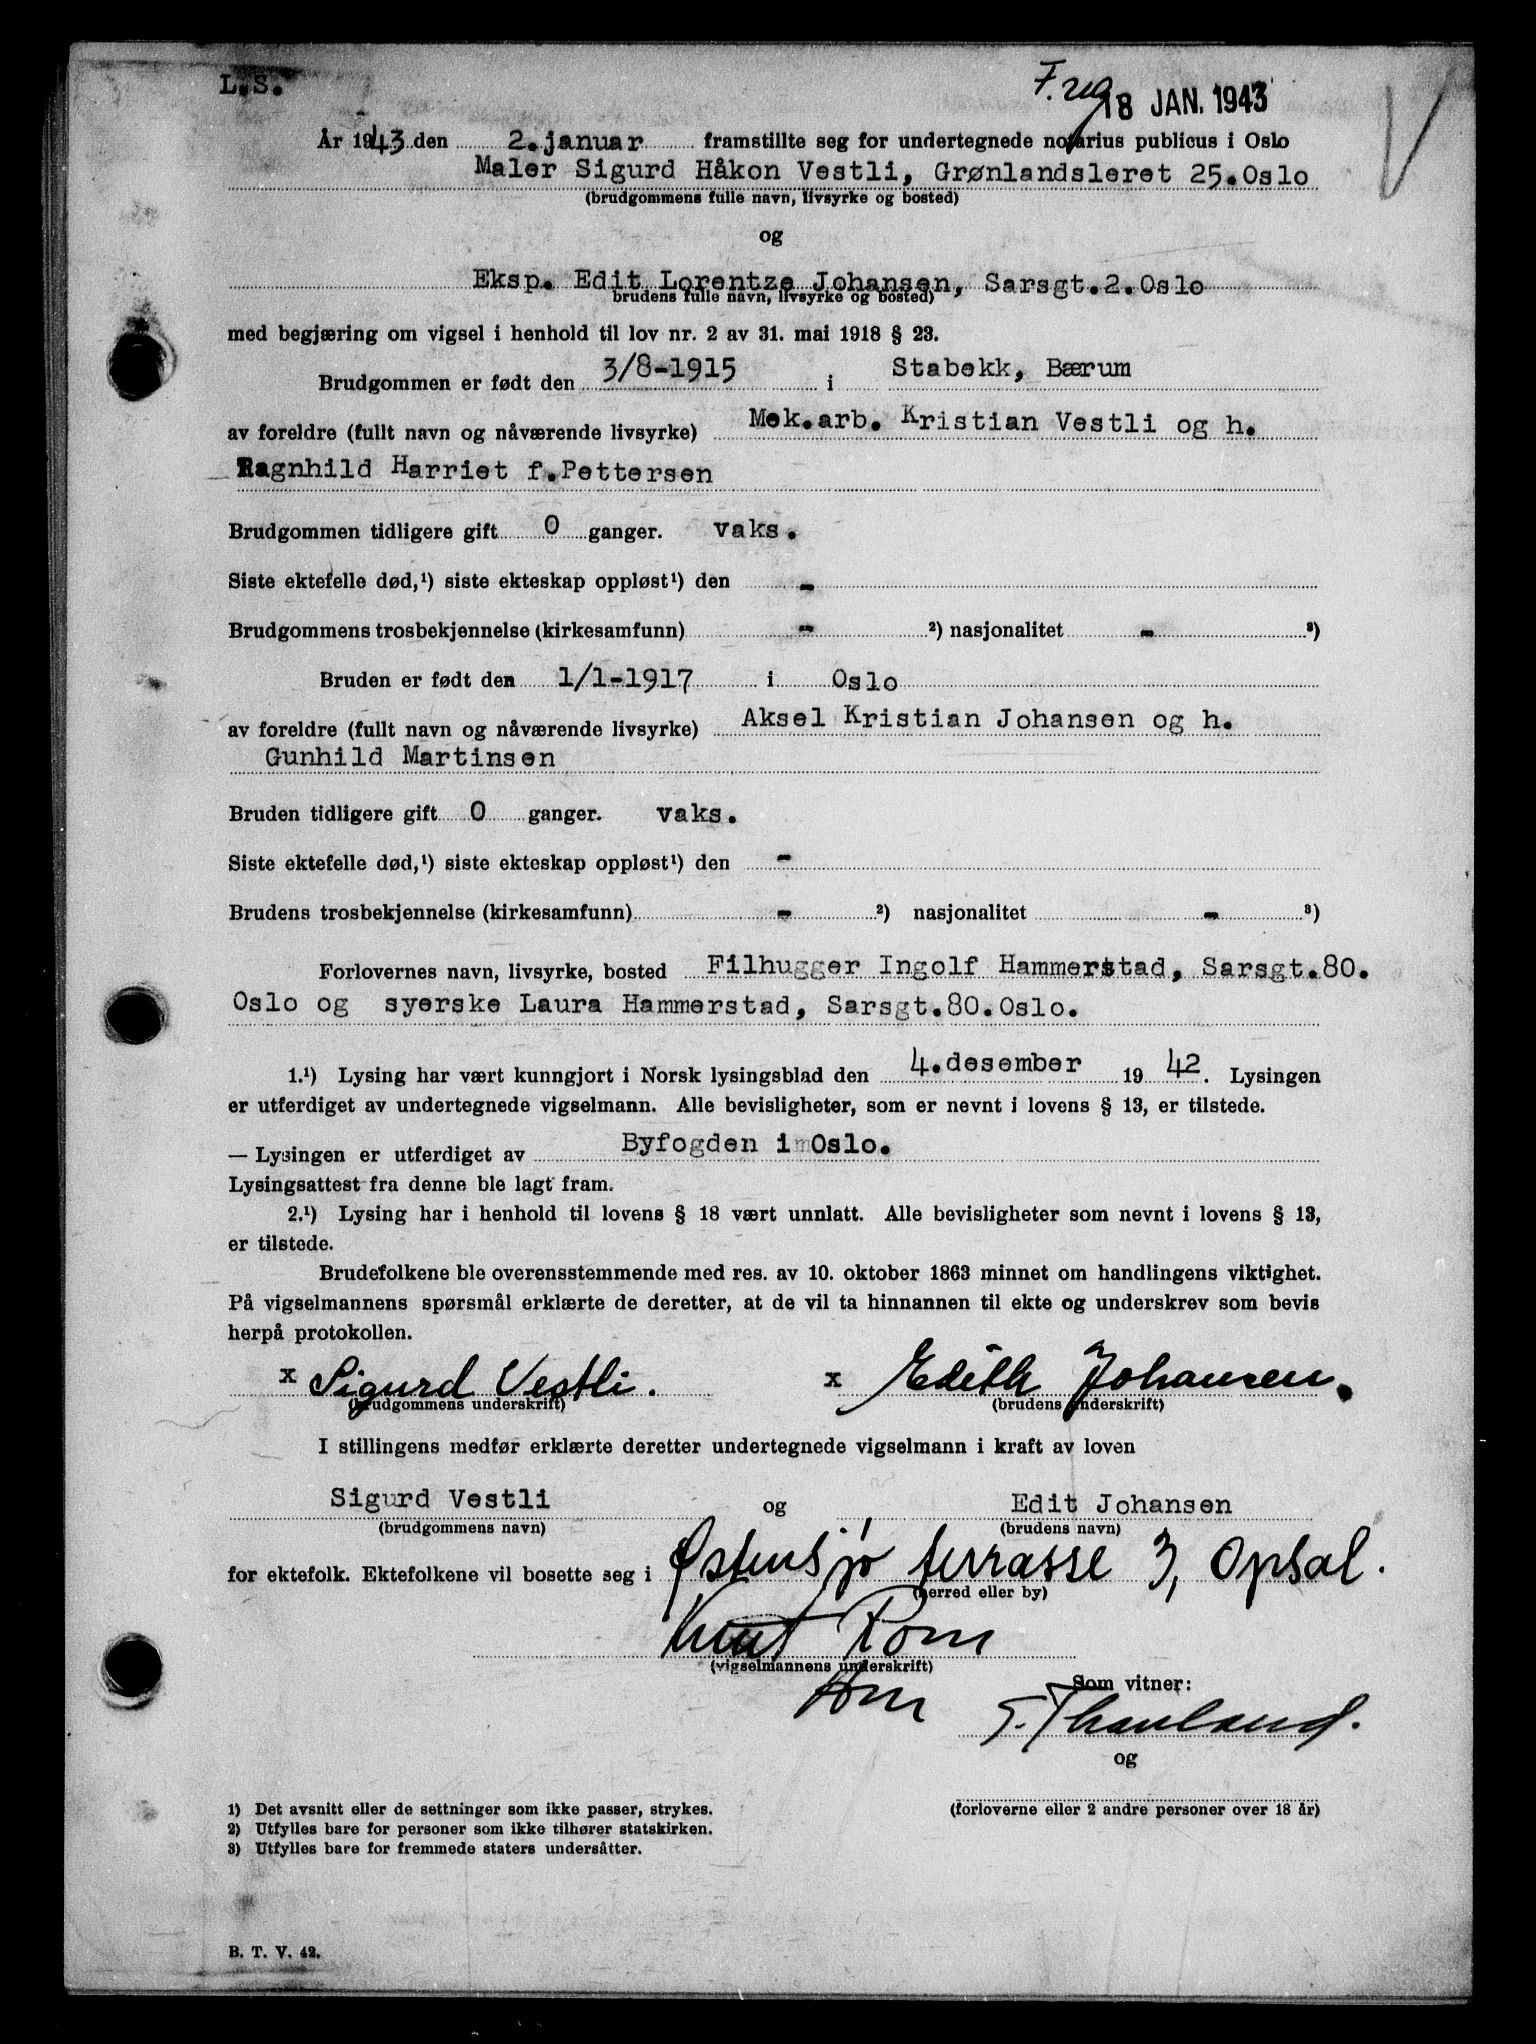 L.S.
F. reg 18 JAN. 1943
År 1943 den 2. januar framstillte seg for undertegnede notarius publicus i Oslo
Maler Sigurd Håkon Vestli, Grønlandsleret 25. Oslo
(brudgommens fulle navn, livsyrke og bosted)
og
Eksp. Edit Lorentze Johansen, Sarsgt.2. Oslo
brudens fulle navn, livsyrke og bosted)
med begjæring om vigsel i henhold til lov nr. 2 av 31. mai 1918 § 23.
Brudgommen er født den 3/8-1915 i Stabekk, Bærum
av foreldre (fullt navn og nåværende livsyrke) Mek.arb. Kristian Vestli og h.
Ragnhild Harriet f. Pettersen
Brudgommen tidligere gift 0 ganger. vaks.
Siste ektefelle død,¹) siste ekteskap oppløst¹) den -
Brudgommens trosbekjennelse (kirkesamfunn) - ²) nasjonalitet - ³)
Bruden er født den 1/1-1917 i Oslo
av foreldre (fullt navn og nåværende livsyrke) Aksel Kristian Johansen og h.
Gunhild Martinsen
Bruden tidligere gift 0 ganger. vaks.
Siste ektefelle død,¹) siste ekteskap oppløst¹) den -
Brudens trosbekjennelse (kirkesamfunn) - ²) nasjonalitet - ³)
Forlovernes navn, livsyrke, bosted Filhugger Ingolf Hammerstad, Sarsgt.80.
Oslo og syerske Laura Hammerstad, Sarsgt.80. Oslo.
1.¹) Lysing har vært kunngjort i Norsk lysingsblad den 4. desember 1942. Lysingen
er utferdiget av undertegnede vigselmann. Alle bevisligheter, som er nevnt i lovens § 13, er tilstede.
— Lysingen er utferdiget av Byfogden i Oslo.
Lysingsattest fra denne ble lagt fram.
2.¹) Lysing har i henhold til lovens § 18 vært unnlatt. Alle bevisligheter som nevnt i lovens § 13,
er tilstede.
Brudefolkene ble overensstemmende med res. av 10. oktober 1863 minnet om handlingens viktighet.
På vigselmannens spørsmål erklærte de deretter, at de vil ta hinnannen til ekte og underskrev som bevis
herpå protokollen.
x Sigurd Vestli. x Edith Johansen.
(brudgommens underskrift) (brudens underskrift)
I stillingens medfør erklærte deretter undertegnede vigselmann i kraft av loven
Sigurd Vestli og Edit Johansen
(brudgommens navn) (brudens navn)
for ektefolk. Ektefolkene vil bosette seg i Østensjø terrasse 3, Opsal.
(herred eller by)
Knut Rom
(vigselmannens underskrift)
Som vitner:
Thauland.
og
(forloverne eller 2 andre personer over 18 år)
1) Det avsnitt eller de settninger som ikke passer, strykes.
2) Utfylles bare for personer som ikke tilhører statskirken.
3) Utfylles bare for fremmede staters undersåtter.
B. T. V. 42.